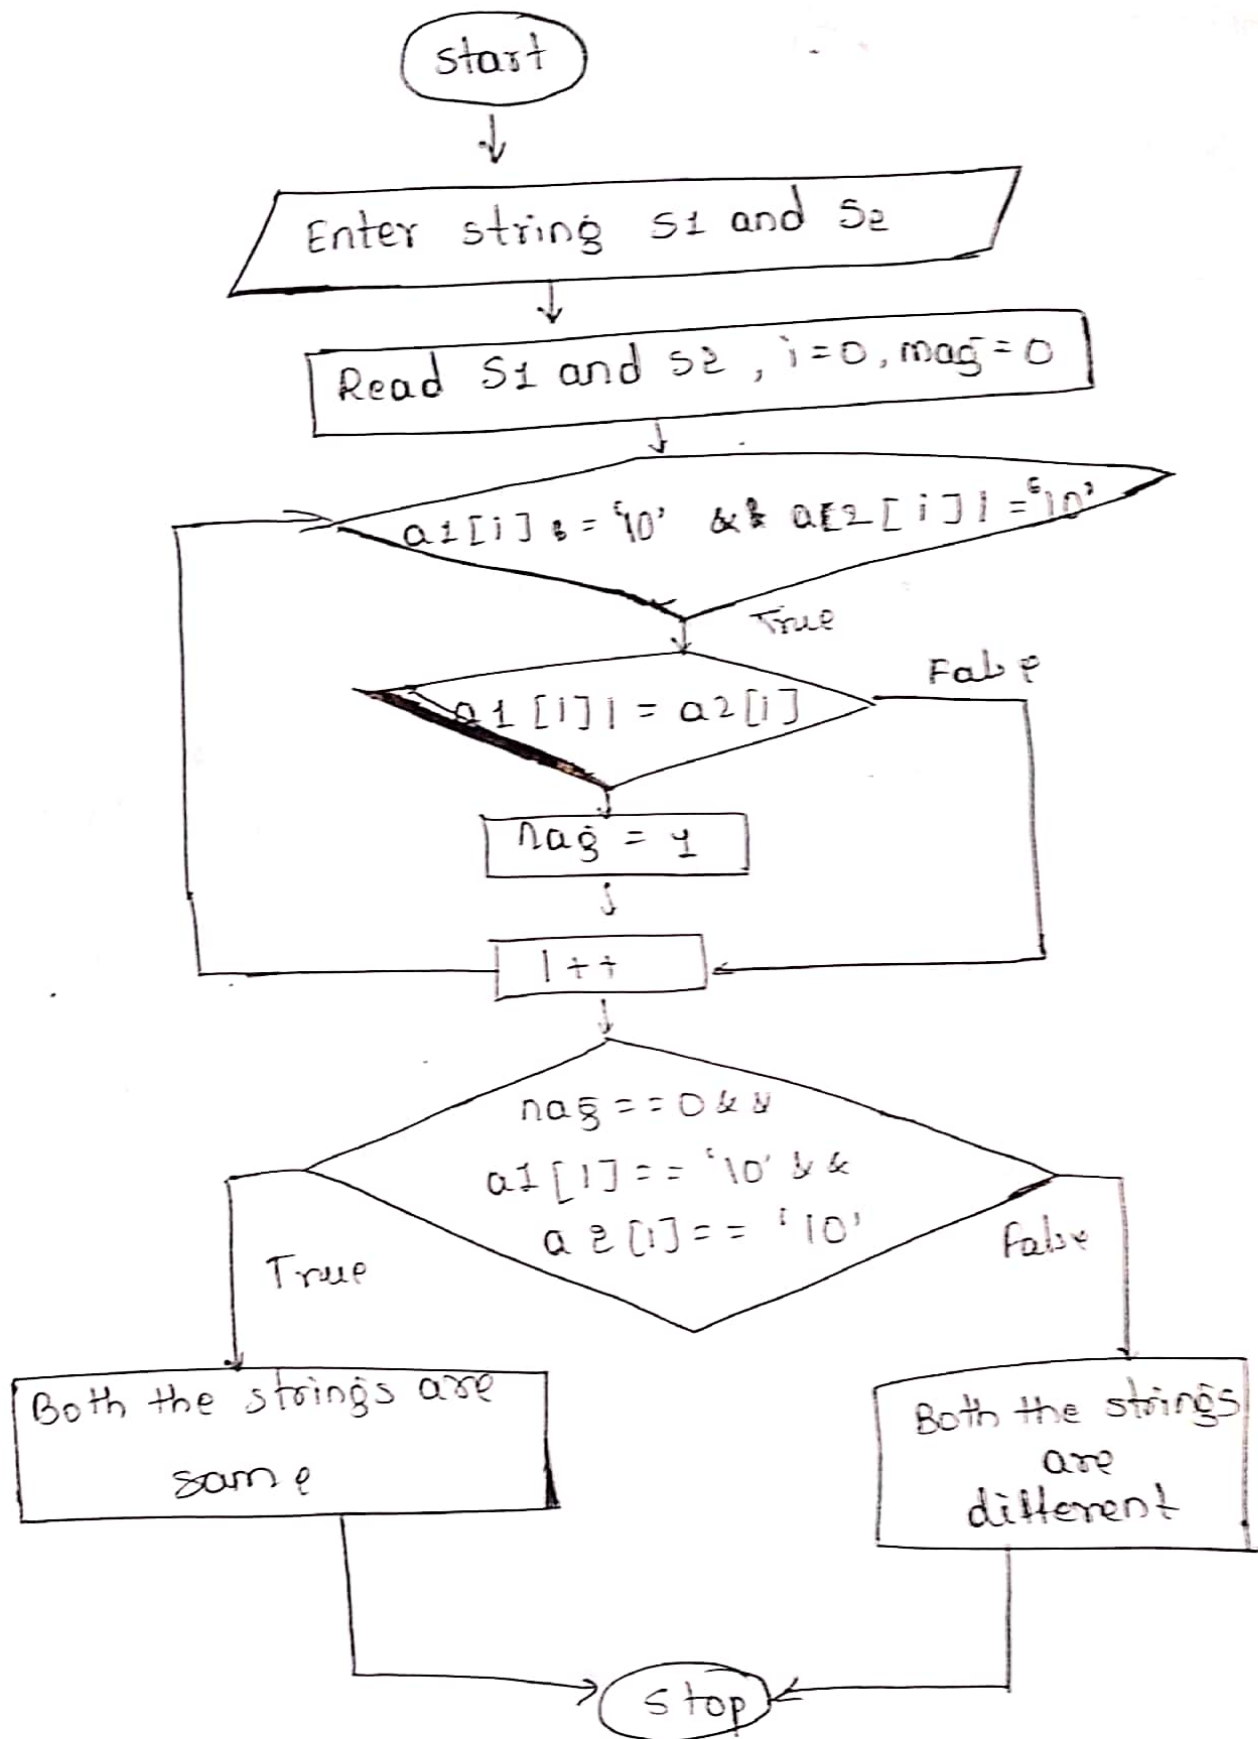 Start
Enter string S1 and S2
Read S1 and S2, i=0, mag=0
a1[i] != '\0' && a[2[i]!='\0'
True
a1[i]!= a2[i]
False
nag = 1
i++
nag==0&&
a1[i]== '\0' &&
a2[i]== '\0'
True
False
Both the strings are
same
Both the strings
are
different
Stop